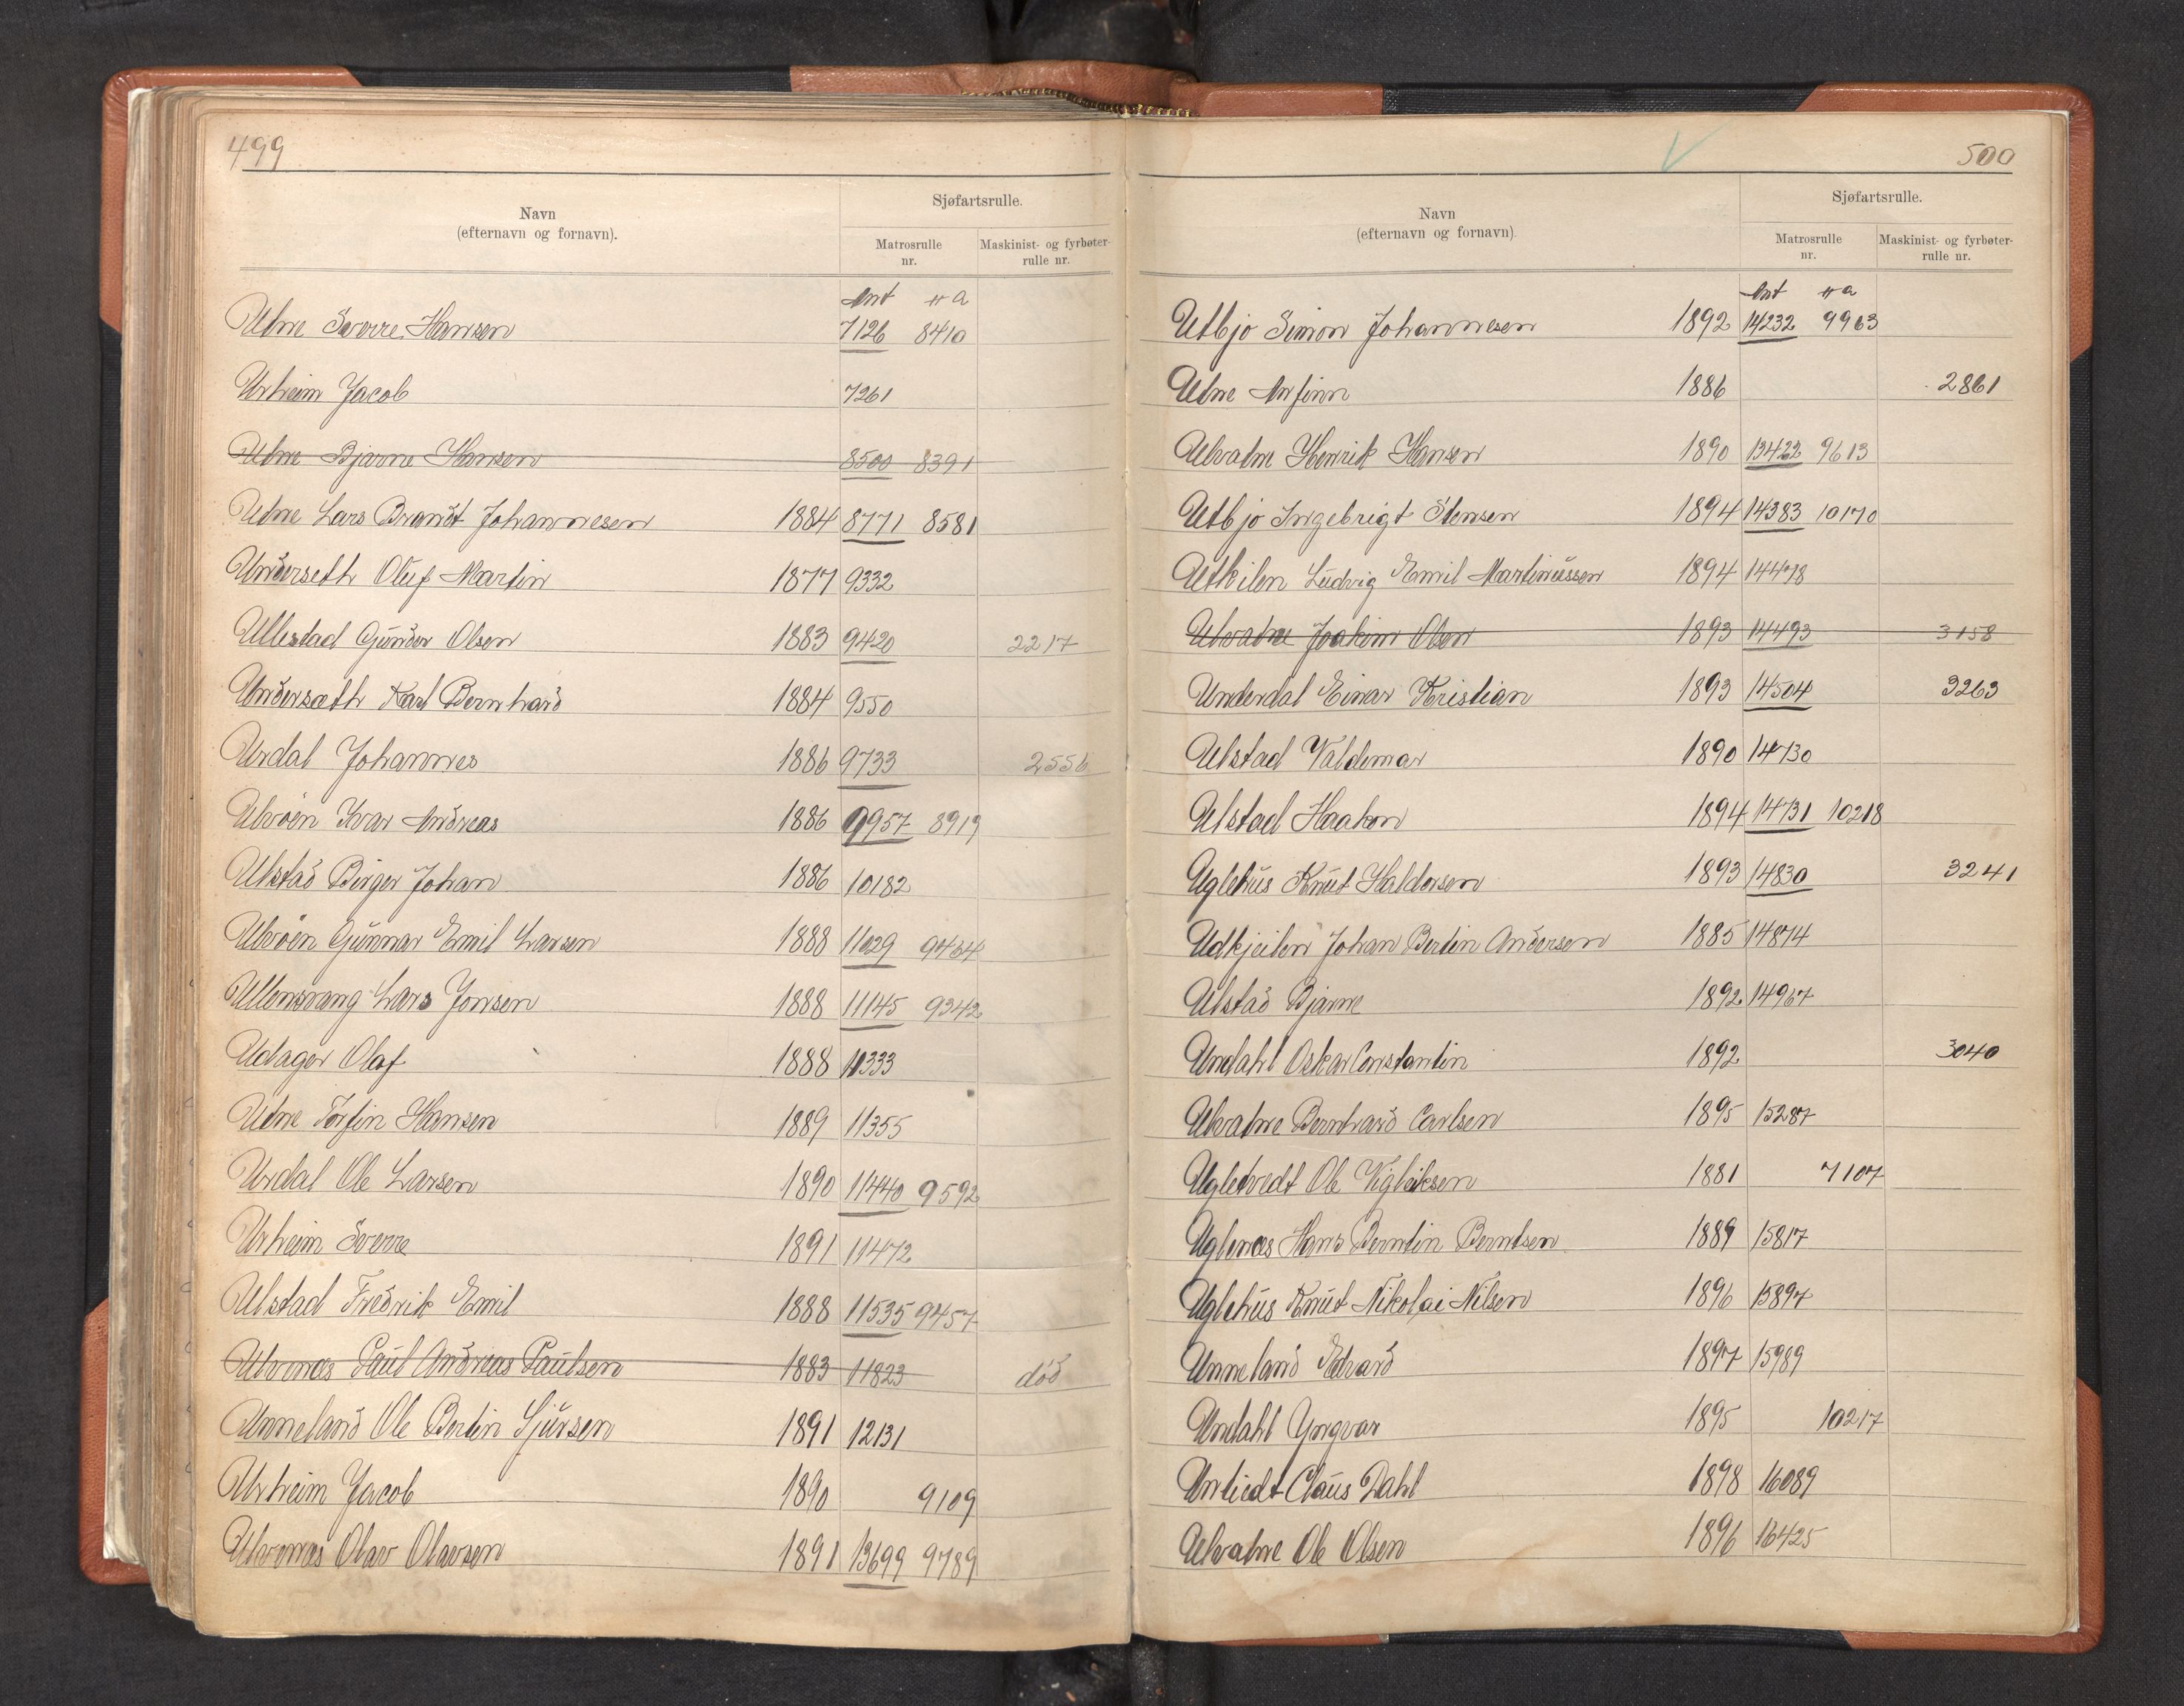 499
Navn
(efternavn og fornavn).
Sjøfartsrulle.
Matrosrulle
nr.
Maskinist- og fyrbøter-
rulle nr.
Ant # a
Utne Sverre Hansen 7126 8410
Urheim Jacob 7261
Utne Bjarne Hansen 8500 8391
Utne Lars Brandt Johannesen 1884 8771 8581
Underseth Oluf Martin 1877 9332
Ullestad Gunder Olsen 1883 9420 2217
Undersæth Karl Bernhard 1884 9550
Urdal Johannes 1886 9733 2556
Ulvøen Ivar Andreas 1886 9957 8919
Ulstad Birger Johan 1886 10182
Ulvøen Gunnar Emil Larsen 1888 11029 9434
Ullensvang Lars Jonsen 1888 11145 9342
Udager Olaf 1888 11333
Utne Torfin Hansen 1889 11355
Urdal Ole Larsen 1890 11440 9592
Urheim Sverre 1891 11472
Ulstad Fredrik Emil 1888 11535 9457
Ulvenæs Paul Andreas Paulsen 1883 11823 død
Unneland Ole Bertin Sjursen 1891 12131
Urheim Jacob 1890 9109
Ulvenæs Olav Olavsen 1891 13699 9789
500
Navn
(efternavn og fornavn).
Sjøfartsrulle.
Matrosrulle
nr.
Maskinist- og fyrbøter-
rulle nr.
Ant # a
Utbjo Simon Johannesen 1892 14232 9963
Utne Arfinn 1886 2861
Ulvatne Henrik Hansen 1890 13422 9613
Utbjo Ingebrigt Stensen 1894 14383 10170
Utkilen Ludvig Emil Martinussen 1894 14478
Ulvatne Joakim Olsen 1893 14493 3158
Underdal Einar Kristian 1893 14504 3263
Ulstad Valdemar 1890 14730
Ulstad Haakon 1894 14731 10218
Uglehus Knut Haldorsen 1893 14830 3241
Udkjeilen Johan Bertin Andersen 1885 14874
Ulstad Bjarne 1892 14967
Undahl Oskar Constantin 1892 3040
Ulvatne Bernhard Carlsen 1895 15287
Ugletvedt Ole Vigleiksen 1881 7107
Uglenæs Hans Berntin Berntsen 1889 15817
Uglehus Knut Nikolai Nilsen 1896 15897
Unneland Edvard 1897 15989
Undahl Yngvar 1895 10217
Untiedt Claus Dahl 1898 16089
Ulvatne Ole Olsen 1896 16425